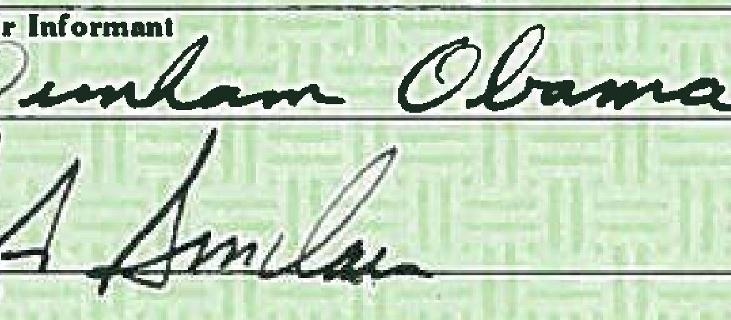 r Informant
Dunham Obama
A Sinclair